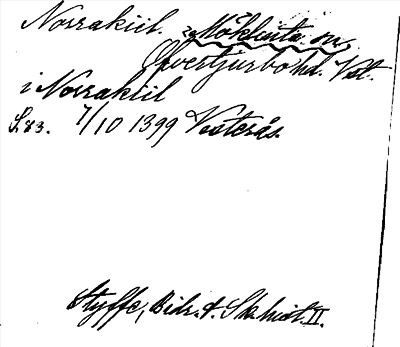 Norrakiil. Möklinta sn
Övertjurbo hd. Vstl.
i Norrakiil
S. 83. 7/10 1399 Vesterås.
Styffe, Bidr. t. Sk. hist. II.